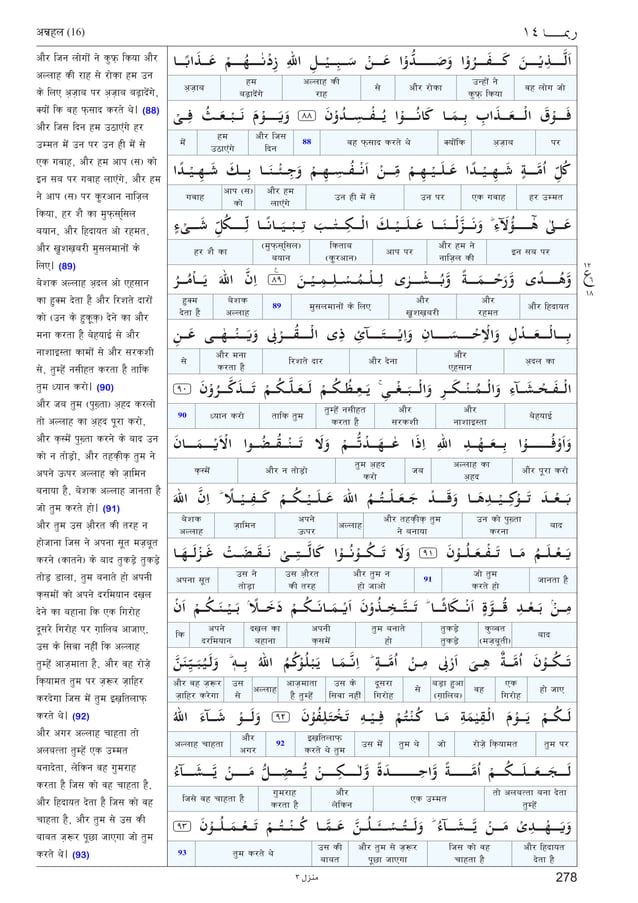 अन्नहल (16)
ربما ١٤
और जिन लोगों ने कुफ़्र किया और
अल्लाह की राह से रोका हम उन
के लिए अ़ज़ाब पर अ़ज़ाब बढ़ादेंगे,
क्यों कि वह फ़साद करते थे। (88)
और जिस दिन हम उठाएंगे हर
उम्मत में उन पर उन ही में से
एक गवाह, और हम आप (स) को
इन सब पर गवाह लाएंगे, और हम
ने आप (स) पर कुरआन नाज़िल
किया, हर शै का मुफ़स्सिल
बयान, और हिदायत ओ रहमत,
और खुशख़बरी मुसलमानों के
लिए। (89)
बेशक अल्लाह अ़दल ओ एहसान
का हुक्म देता है और रिश्ते दारों
को (उन के हुकूक़) देने का और
मना करता है बेहयाई से और
नाशाइस्ता कामों से और सरकशी
से, तुम्हें नसीहत करता है ताकि
तुम ध्यान करो। (90)
और जब तुम (पुख़्ता) अ़हद करलो
तो अल्लाह का अ़हद पूरा करो,
और क़स्में पुख़्ता करने के बाद उन
को न तोड़ो, और तहक़ीक़ तुम ने
अपने ऊपर अल्लाह को ज़ामिन
बनाया है, बेशक अल्लाह जानता है
जो तुम करते हो। (91)
और तुम उस औ़रत की तरह न
होजाना जिस ने अपना सूत मज़बूत
करने (कातने) के बाद टुकड़े टुकड़े
तोड़ डाला, तुम बनाते हो अपनी
क़समों को अपने दरमियान दख़ल
देने का बहाना कि एक गिरोह
दूसरे गिरोह पर ग़ालिब आजाए,
उस के सिवा नहीं कि अल्लाह
तुम्हें आज़माता है, और वह रोज़े
क़ियामत तुम पर ज़रूर ज़ाहिर
करदेगा जिस में तुम इख़तिलाफ़
करते थे। (92)
और अगर अल्लाह चाहता तो
अलबत्ता तुम्हें एक उम्मत
बनादेता, लेकिन वह गुमराह
करता है जिस को वह चाहता है,
और हिदायत देता है जिस को वह
चाहता है, और तुम से उस की
बाबत ज़रूर पूछा जाएगा जो तुम
करते थे। (93)
اَلَّذِيْنَ كَفَرُوْا وَصَدُّوْا عَنْ سَبِيْلِ اللهِ زِدْنٰهُمْ عَذَابًا
वह लोग जो | उन्हों ने कुफ़्र किया | और रोका | से | अल्लाह की राह | हम बढ़ादेंगे | अ़ज़ाब
فَوْقَ الْعَذَابِ بِمَا كَانُوْا يُفْسِدُوْنَ ٨٨ وَيَوْمَ نَبْعَثُ فِيْ
पर | अ़ज़ाब | क्योंकि | वह फ़साद करते थे | 88 | और जिस दिन | हम उठाएंगे | में
كُلِّ اُمَّةٍ شَهِيْدًا عَلَيْهِمْ مِّنْ اَنْفُسِهِمْ وَجِئْنَا بِكَ شَهِيْدًا
हर उम्मत | एक गवाह | उन पर | उन ही में से | और हम लाएंगे | आप (स) को | गवाह
عَلٰى هٰٓؤُلَآءِ ؕ وَنَزَّلْنَا عَلَيْكَ الْكِتٰبَ تِبْيَانًا لِّكُلِّ شَىْءٍ
इन सब पर | और हम ने नाज़िल की | आप पर | किताब (कुरआन) | (मुफ़स्सिल) बयान | हर शै का
وَّهُدًى وَّرَحْمَةً وَّبُشْرٰى لِلْمُسْلِمِيْنَ ٨٩ اِنَّ اللهَ يَاْمُرُ
और हिदायत | और रहमत | और खुशख़बरी | मुसलमानों के लिए | 89 | बेशक अल्लाह | हुक्म देता है
١٢
ع
١٨
بِالْعَدْلِ وَالْاِحْسَانِ وَاِيْتَآئِ ذِى الْقُرْبٰى وَيَنْهٰى عَنِ
अ़दल का | और एहसान | और देना | रिश्ते दार | और मना करता है | से
الْفَحْشَآءِ وَالْمُنْكَرِ وَالْبَغْىِ ۚ يَعِظُكُمْ لَعَلَّكُمْ تَذَكَّرُوْنَ ٩٠
बेहयाई | और नाशाइस्ता | और सरकशी | तुम्हें नसीहत करता है | ताकि तुम | ध्यान करो | 90
وَاَوْفُوْا بِعَهْدِ اللهِ اِذَا عٰهَدْتُّمْ وَلَا تَنْقُضُوا الْاَيْمَانَ
और पूरा करो | अल्लाह का अ़हद | जब | तुम अ़हद करो | और न तोड़ो | क़स्में
بَعْدَ تَوْكِيْدِهَا وَقَدْ جَعَلْتُمُ اللهَ عَلَيْكُمْ كَفِيْلًا ؕ اِنَّ اللهَ
बाद | उन को पुख़्ता करना | और तहक़ीक़ तुम ने बनाया | अल्लाह | अपने ऊपर | ज़ामिन | बेशक अल्लाह
يَعْلَمُ مَا تَفْعَلُوْنَ ٩١ وَلَا تَكُوْنُوْا كَالَّتِىْ نَقَضَتْ غَزْلَهَا
जानता है | जो तुम करते हो | 91 | और तुम न हो जाओ | उस औ़रत की तरह | उस ने तोड़ा | अपना सूत
مِنْۢ بَعْدِ قُوَّةٍ اَنْكَاثًا ؕ تَتَّخِذُوْنَ اَيْمَانَكُمْ دَخَلًاۢ بَيْنَكُمْ اَنْ
बाद | कुव्वत (मज़बूती) | टुकड़े टुकड़े | तुम बनाते हो | अपनी क़समें | दख़ल का बहाना | अपने दरमियान | कि
تَكُوْنَ اُمَّةٌ هِىَ اَرْبٰى مِنْ اُمَّةٍ ؕ اِنَّمَا يَبْلُوْكُمُ اللهُ بِهٖ ؕ وَلَيُبَيِّنَنَّ
हो जाए | एक गिरोह | वह | बड़ा हुआ (ग़ालिब) | से | दूसरा गिरोह | उस के सिवा नहीं | आज़माता है तुम्हें | अल्लाह | उस से | और वह ज़रूर ज़ाहिर करेगा
لَكُمْ يَوْمَ الْقِيٰمَةِ مَا كُنْتُمْ فِيْهِ تَخْتَلِفُوْنَ ٩٢ وَلَوْ شَآءَ اللهُ
तुम पर | रोज़े क़ियामत | जो | तुम थे | उस में | इख़तिलाफ़ करते थे तुम | 92 | और अगर | अल्लाह चाहता
لَجَعَلَكُمْ اُمَّةً وَّاحِدَةً وَّلٰكِنْ يُّضِلُّ مَنْ يَّشَآءُ
तो अलबत्ता बना देता तुम्हें | एक उम्मत | और लेकिन | गुमराह करता है | जिसे वह चाहता है
وَيَهْدِىْ مَنْ يَّشَآءُ ؕ وَلَتُسْـَٔلُنَّ عَمَّا كُنْتُمْ تَعْمَلُوْنَ ٩٣
और हिदायत देता है | जिस को वह चाहता है | और तुम से ज़रूर पूछा जाएगा | उस की बाबत | तुम करते थे | 93
منزل ٣
278